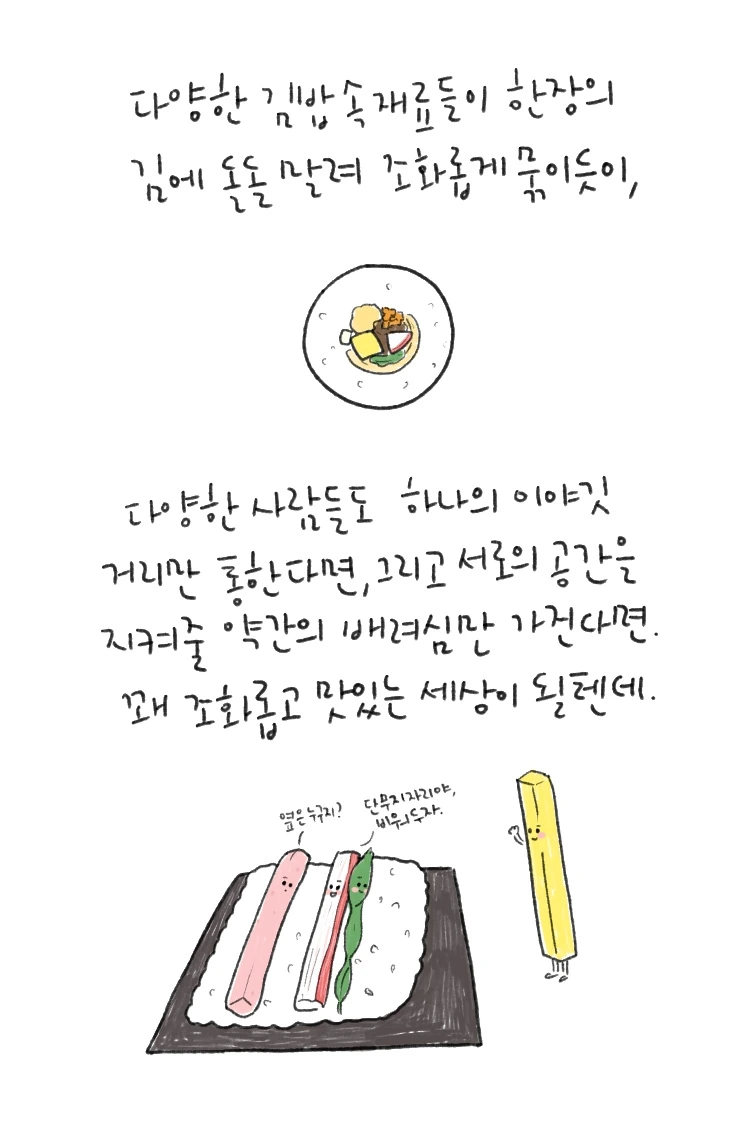 다양한 김밥 속 재료들이 한장의
김에 돌돌 말려 조화롭게 묶이듯이,
다양한 사람들도 하나의 이야깃
거리만 통한다면, 그리고 서로의 공간을
지켜줄 약간의 배려심만 가진다면.
꽤 조화롭고 맛있는 세상이 될텐데.
옆은 누구지?
단무지 자리야,
비워두자.